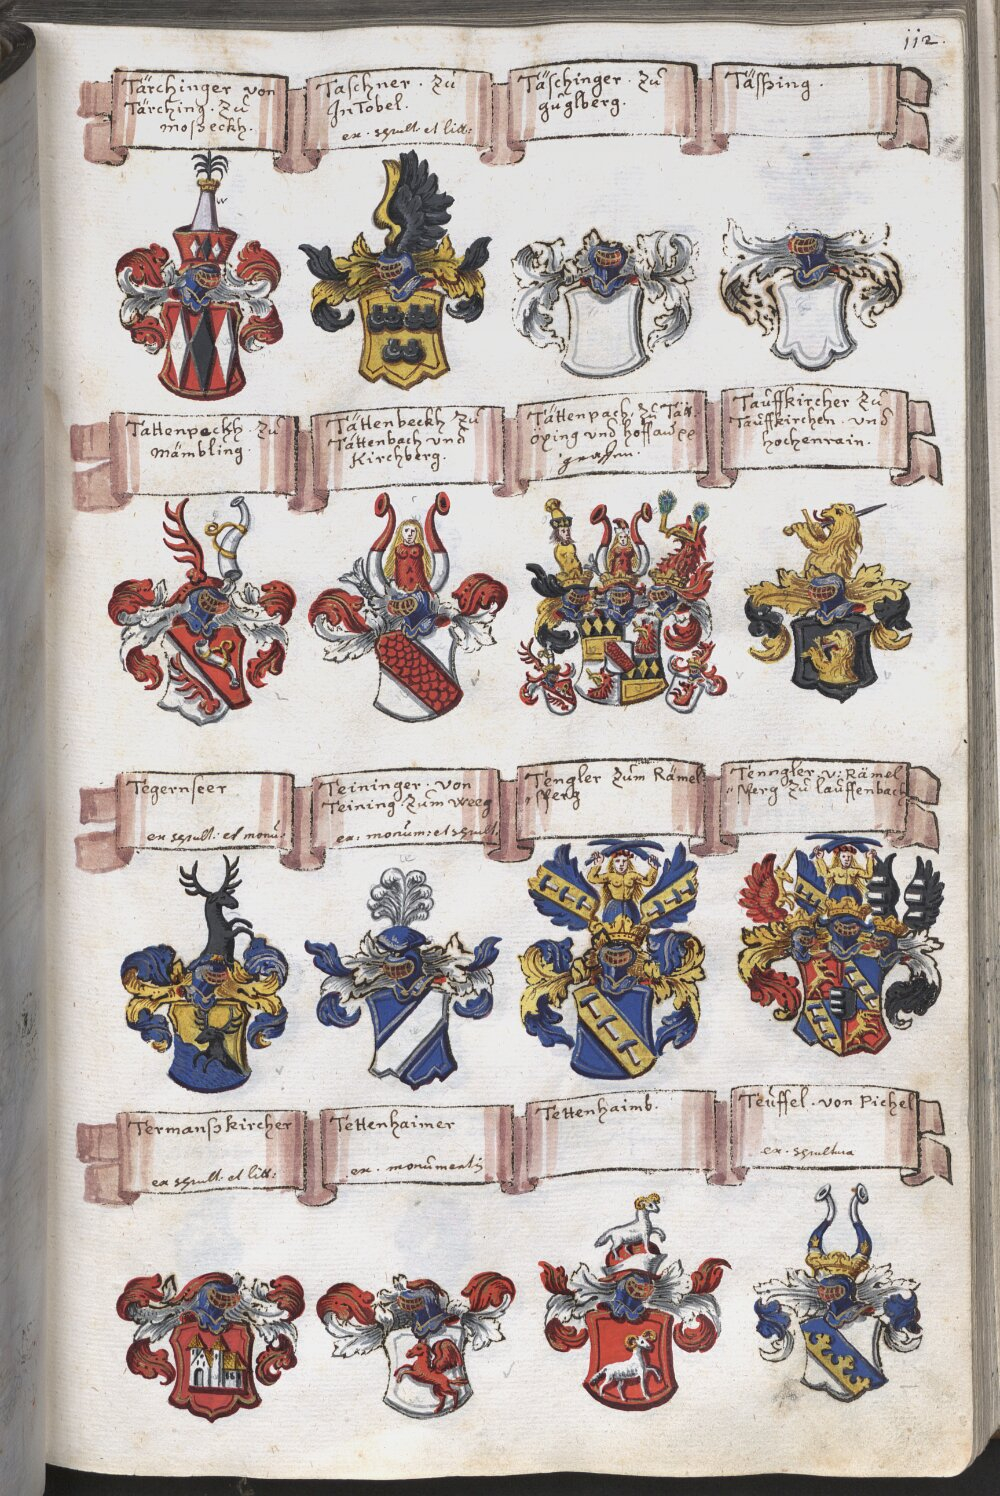 112.
Tärchinger von
Tärching. Zu
Moßeckh.
Taschner. Zu
InTobel.
ex. sculpt. et litt:
Täschinger. Zu
guglberg.
Täsßing.
Tattenpeckh Zu
Mämbling.
Tättenbeckh Zu
Tättenbach und
Kirchberg.
Tättenpach. Zu
oxing und
graffen.
Tauffkircher Zu
Tauffkirchen. und
hochenrain.
Tegernseer
ex sculpt: et monu:
Teininger. von
Teining. Zum Weeg
ex: monum: et sculpt.
Tengler Zum Rämel
Perg
Tenngler. v: Rämel
Perg Zu lauffenbach
Termanskircher
ex sculpt. et litt:
Tettenhaimer
ex. monumentis
Tettenhaimb.
Teuffel. von Pichel
ex. sculptura